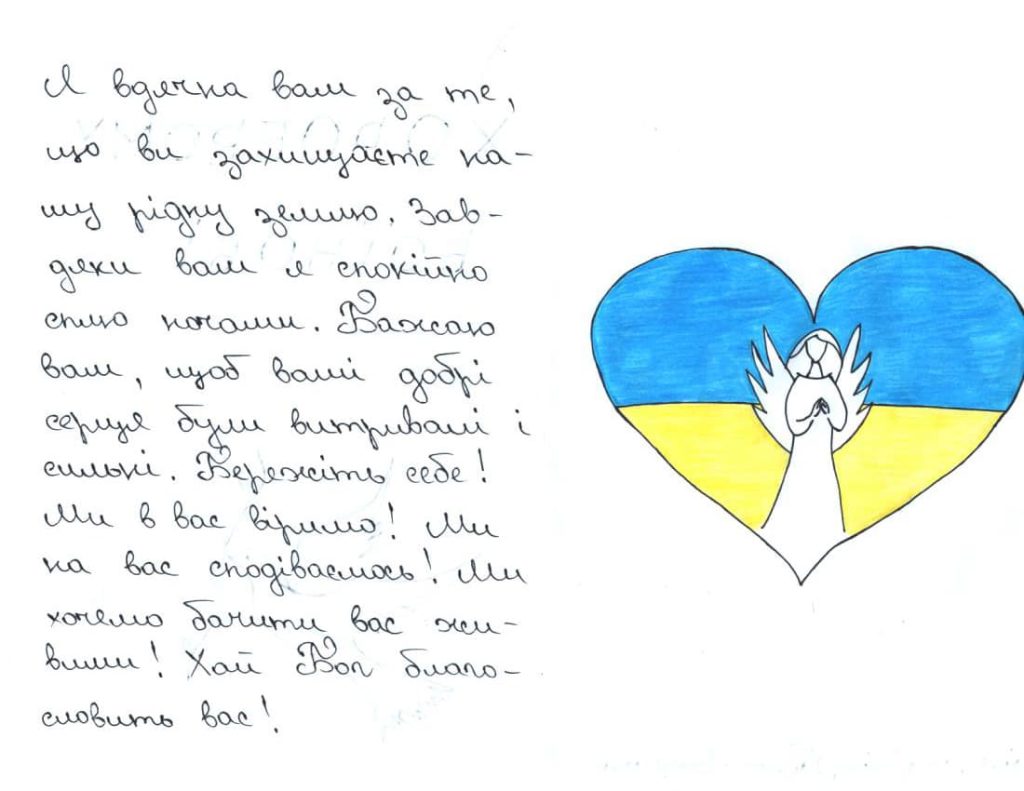 Я вдячна вам за те,
що ви захищаєте на-
шу рідну землю. Зав-
дяки вам я спокійно
сплю ночами. Бажаю
вам, щоб ваші добрі
серця були витривалі і
сильні. Бережіть себе!
Ми в вас віримо! Ми
на вас сподіваємось! Ми
хочемо бачити вас жи-
вими! Хай Бог благо-
словить вас!